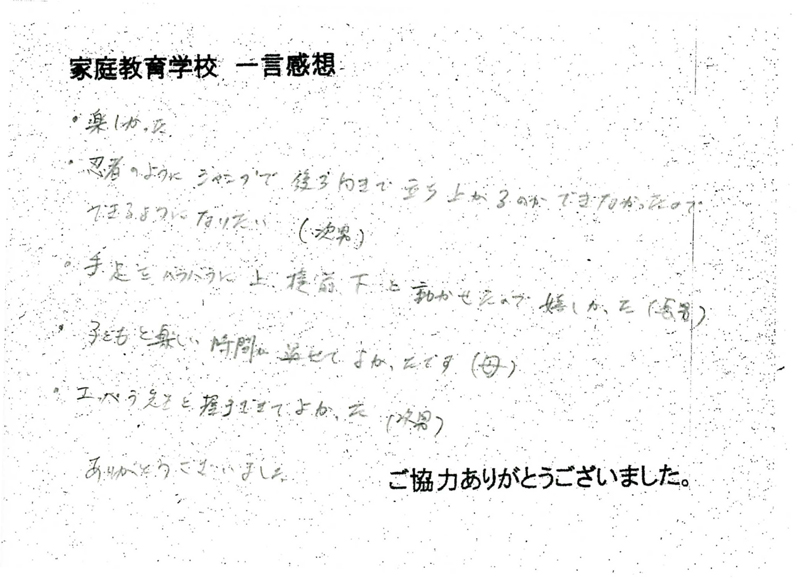 家庭教育学校 一言感想
・楽しかった
・忍者のように ジャンプで 後ろ向きで 立ち上がるのが できなかったので
できるようになりたい (次男)
・手足をバラバラに 上 横 前 下 と 動かせたので 嬉しかった (長男)
・子どもと楽しい 時間が 過せて よかったです (母)
・と握手できてよかった (次男)
ありがとうございました
ご協力ありがとうございました。